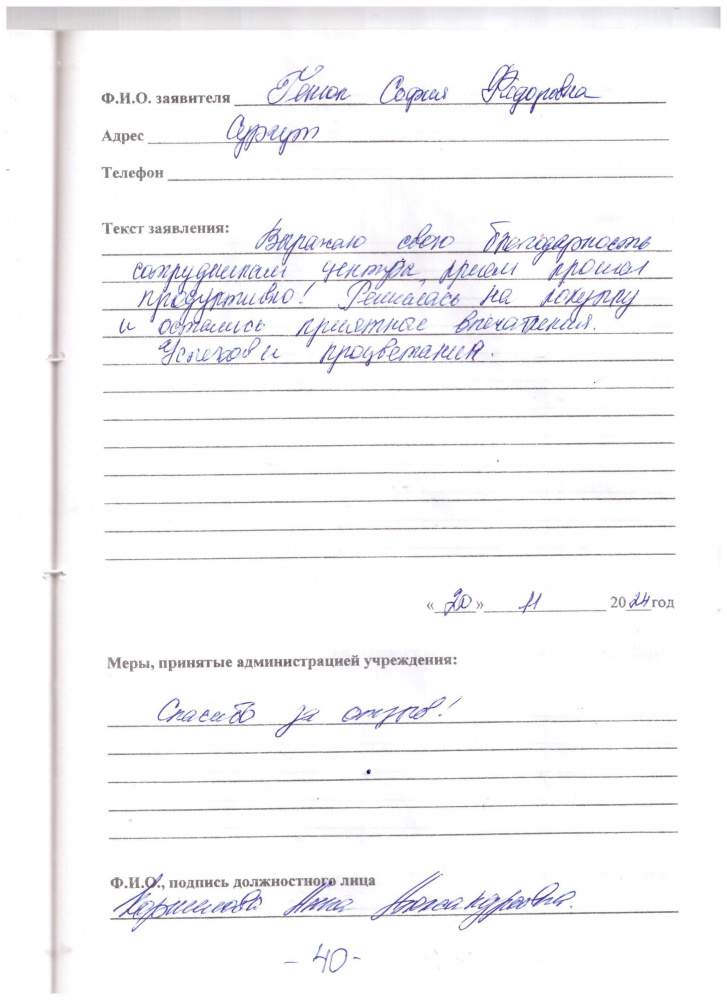 Ф.И.О. заявителя София Фёдоровна
Адрес Сургут
Телефон
Текст заявления: Выражаю свою благодарность
сотрудникам центра, прием прошел
продуртивно! Решилась на покупку
и остались приятные впечатления.
Успехов и процветания.
«20» 11 2024 год
Меры, принятые администрацией учреждения:
Спасибо за отзыв!
Ф.И.О., подпись должностного лица
Анна Александровна.
- 40 -